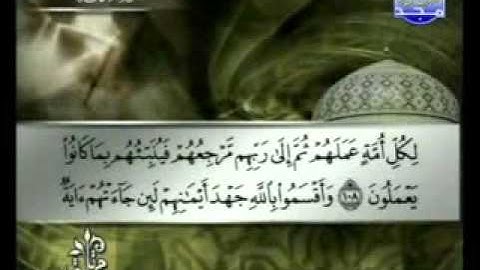 مجد
لِكُلِّ أُمَّةٍ عَمَلَهُمْ ثُمَّ إِلَىٰ رَبِّهِم مَّرْجِعُهُمْ فَيُنَبِّئُهُم بِمَا كَانُوا۟
يَعْمَلُونَ ١٠٨ وَأَقْسَمُوا۟ بِٱللَّهِ جَهْدَ أَيْمَـٰنِهِمْ لَئِن جَآءَتْهُمْ ءَايَةٌ